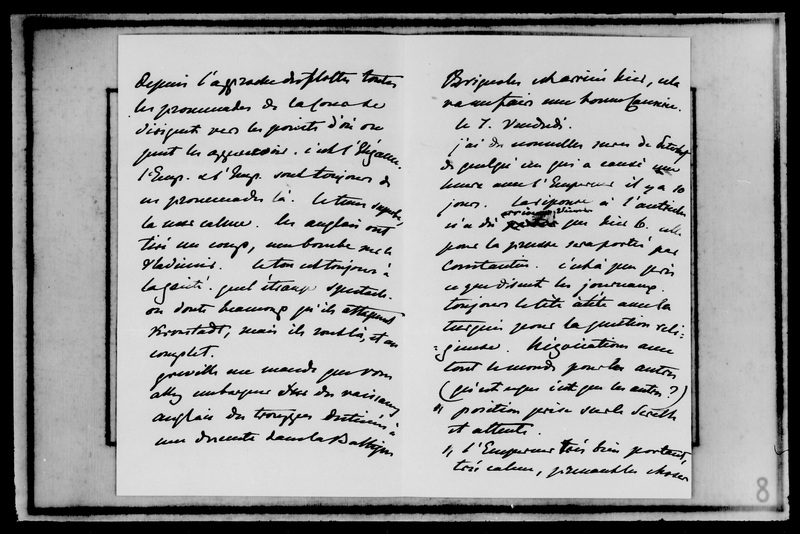 Depuis l'approche des flottes toutes
les promenades de la Cour se
dirigent vers les points d'où on
peut les appercevoir. c'est l'élégance.
l'Emp. et l'Emp. sont toujours de
ces promenades là. le tems superbe
la mer calme. les anglais ont
tiré un coup, une bombe sur le
Vladimir. le ton est toujours à
la gaité. quel étrange spectacle.
on doute beaucoup qu'ils attaquent
Kronstadt, mais ils sont là, et au
complet.
Greville me mande que vous
allez embarquer sur des vaisseaux
anglais des trouppes destinées à
une descente dans la Baltique
Brignoles est arrivé hier, cela
va me faire une bonne causerie.
le 7. Vendredi.
j'ai des nouvelles sures de
de quelqu'un qui a causé une
heure avec l'Empereur il y a 10
jours. la réponse à l'autriche
n'a dû arriver que hier 6. celle
pour la prusse sera portée par
Constantin. c'est à peu près
ce que disent les journaux.
toujours le tête à tête avec la
turquie pour la question reli=
=gieuse. Négociations avec
tout le monde pour les autres
(qu'est ce que c'est que les autres ?)
" position prise sur le Sereth
et attente.
", l'Empereur très bien portant,
très calme, prenant les choses
8